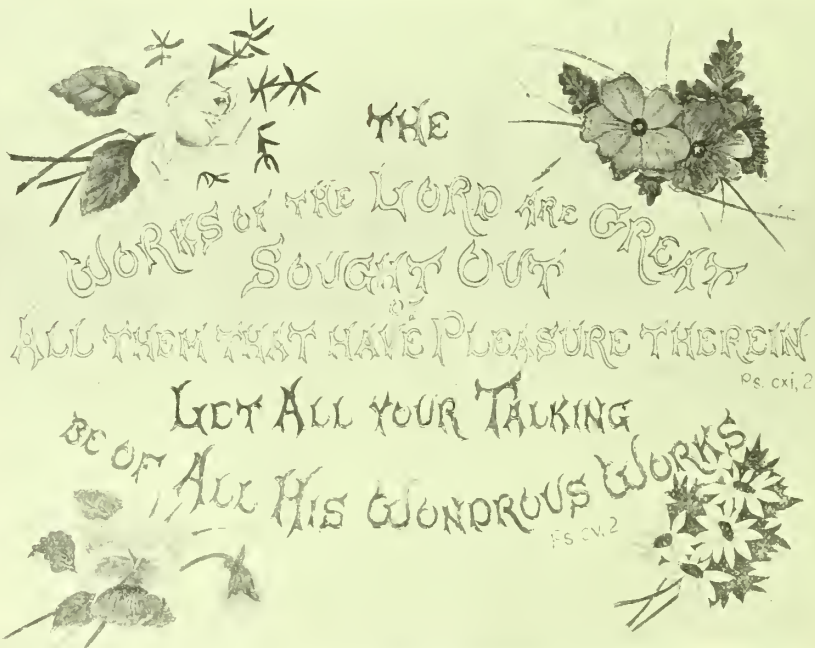 THE
WORKS OF THE LORD ARE GREAT
SOUGHT OUT
OF
ALL THEM THAT HAVE PLEASURE THEREIN
Ps. cxi, 2
LET ALL YOUR TALKING
BE OF ALL HIS WONDROUS WORKS
Ps. cv. 2